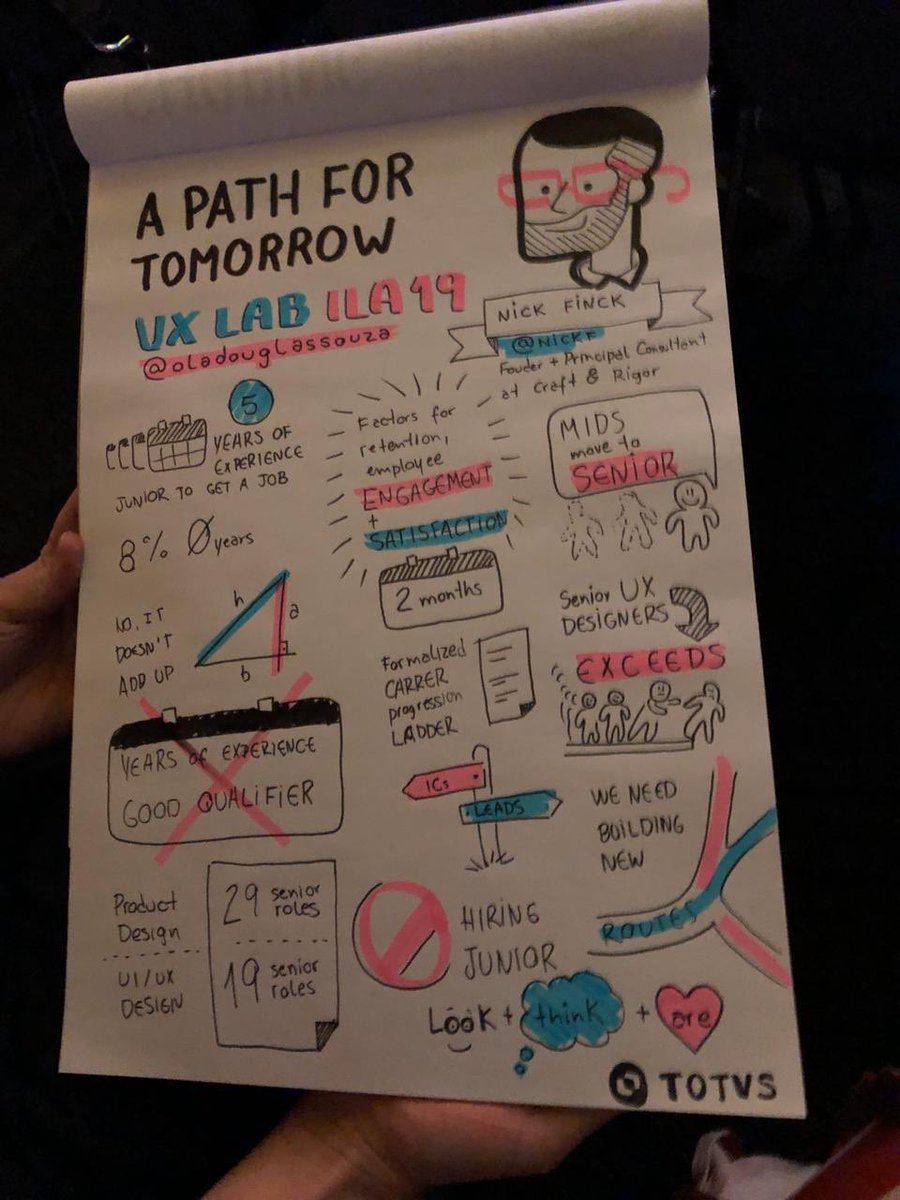 A PATH FOR
TOMORROW
UX LAB ILA 19
@oladouglassouza
NICK FINCK
@NICKF
Fouder + Principal Consultant
at Craft & Rigor
5
YEARS OF
EXPERIENCE
JUNIOR TO GET A JOB
8% 0 years
NO, IT
DOESN'T
ADD UP
h
a
b
YEARS OF EXPERIENCE
GOOD QUALIFIER
Product
Design
29 senior
roles
UI/UX
DESIGN
19 senior
roles
Factors for
retention,
employee
ENGAGEMENT
+
SATISFACTION
2 months
Formalized
CARRER
progression
LADDER
ICs
LEADS
HIRING
JUNIOR
MIDS
move to
SENIOR
Senior UX
DESIGNERS
EXCEEDS
WE NEED
BUILDING
NEW
ROUTES
LOOK + think + are
TOTVS